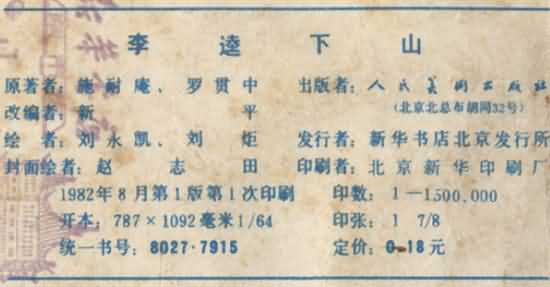 李逵下山
原著者：施耐庵、罗贯中 出版者：人民美术出版社
改编者：新平 （北京北总布胡同32号）
绘者：刘永凯、刘炬 发行者：新华书店北京发行所
封面绘者：赵志田 印刷者：北京新华印刷厂
1982年8月第1版第1次印刷 印数：1—1,500,000
开本：787×1092毫米1/64 印张：1 7/8
统一书号：8027·7915 定价：0.18元